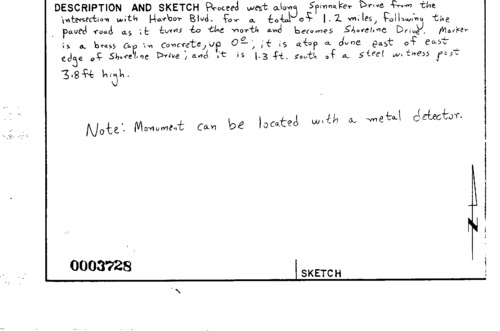 DESCRIPTION AND SKETCH Proceed west along Spinnaker Drive from the
intersection with Harbor Blvd. for a total of 1.2 miles, following the
paved road as it turns to the north and becomes Shoreline Drive. Marker
is a brass cap in concrete, up 0.2; it is atop a dune east of east
edge of Shoreline Drive; and it is 1.3 ft. south of a steel witness post
3.8 ft high.
Note: Monument can be located with a metal detector.
N
0003728
SKETCH